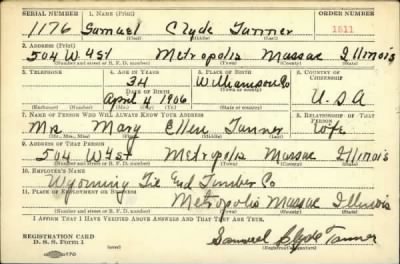 SERIAL NUMBER 1. NAME (Print) ORDER NUMBER
1176 Samuel Clyde Tanner 1511
(First) (Middle) (Last)
2. ADDRESS (Print)
504 W 4st Metropolis Massac Illinois
(Number and street or R. F. D. number) (Town) (County) (State)
3. TELEPHONE 4. AGE IN YEARS 5. PLACE OF BIRTH 6. COUNTRY OF CITIZENSHIP
34 Williamson Co
DATE OF BIRTH
April 4 1906 U-S A
(Exchange) (Number) (Mo.) (Day) (Yr.) (State or country)
7. NAME OF PERSON WHO WILL ALWAYS KNOW YOUR ADDRESS 8. RELATIONSHIP OF THAT PERSON
Mrs Mary Ellen Tanner Wife
(Mr., Mrs., Miss) (First) (Middle) (Last)
9. ADDRESS OF THAT PERSON
504 W 4st Metropolis Massac Illinois
(Number and street or R. F. D. number) (Town) (County) (State)
10. EMPLOYER'S NAME
Wyoming Tie And Timber Co
11. PLACE OF EMPLOYMENT OR BUSINESS
Metropolis Massac Illinois
(Number and street or R. F. D. number) (Town) (County) (State)
I AFFIRM THAT I HAVE VERIFIED ABOVE ANSWERS AND THAT THEY ARE TRUE.
REGISTRATION CARD
D. S. S. Form 1 Samuel Clyde Tanner
(Registrant's signature)